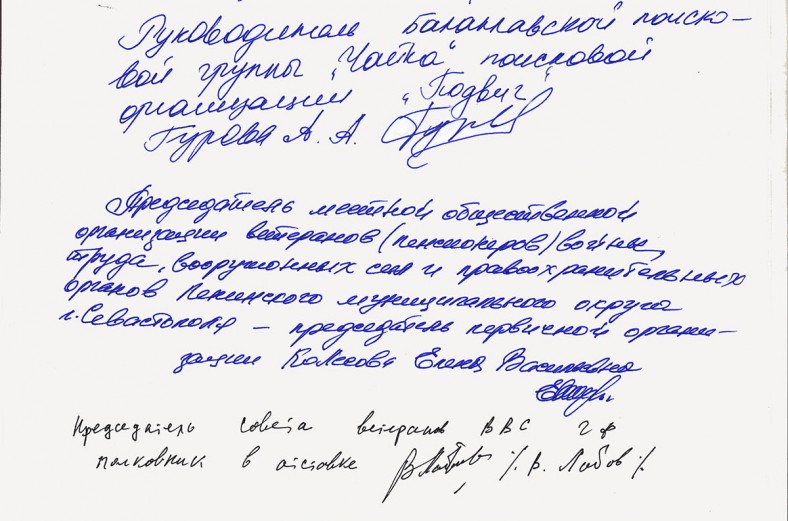 Руководитель балаклавской поиско-
вой группы "Чайка" поисковой
организации "Подвиг"
Гурова А. А.
Председатель местной общественной
организации ветеранов (пенсионеров) войны,
труда, вооружонных сил и правоохранительных
органов Ленинского муниципального округа
г. Севастополя – председатель первичной органи-
зации Елена Васильевна
Председатель совета ветеранов ВВС ЧФ
полковник в отставке /В. Лобов/